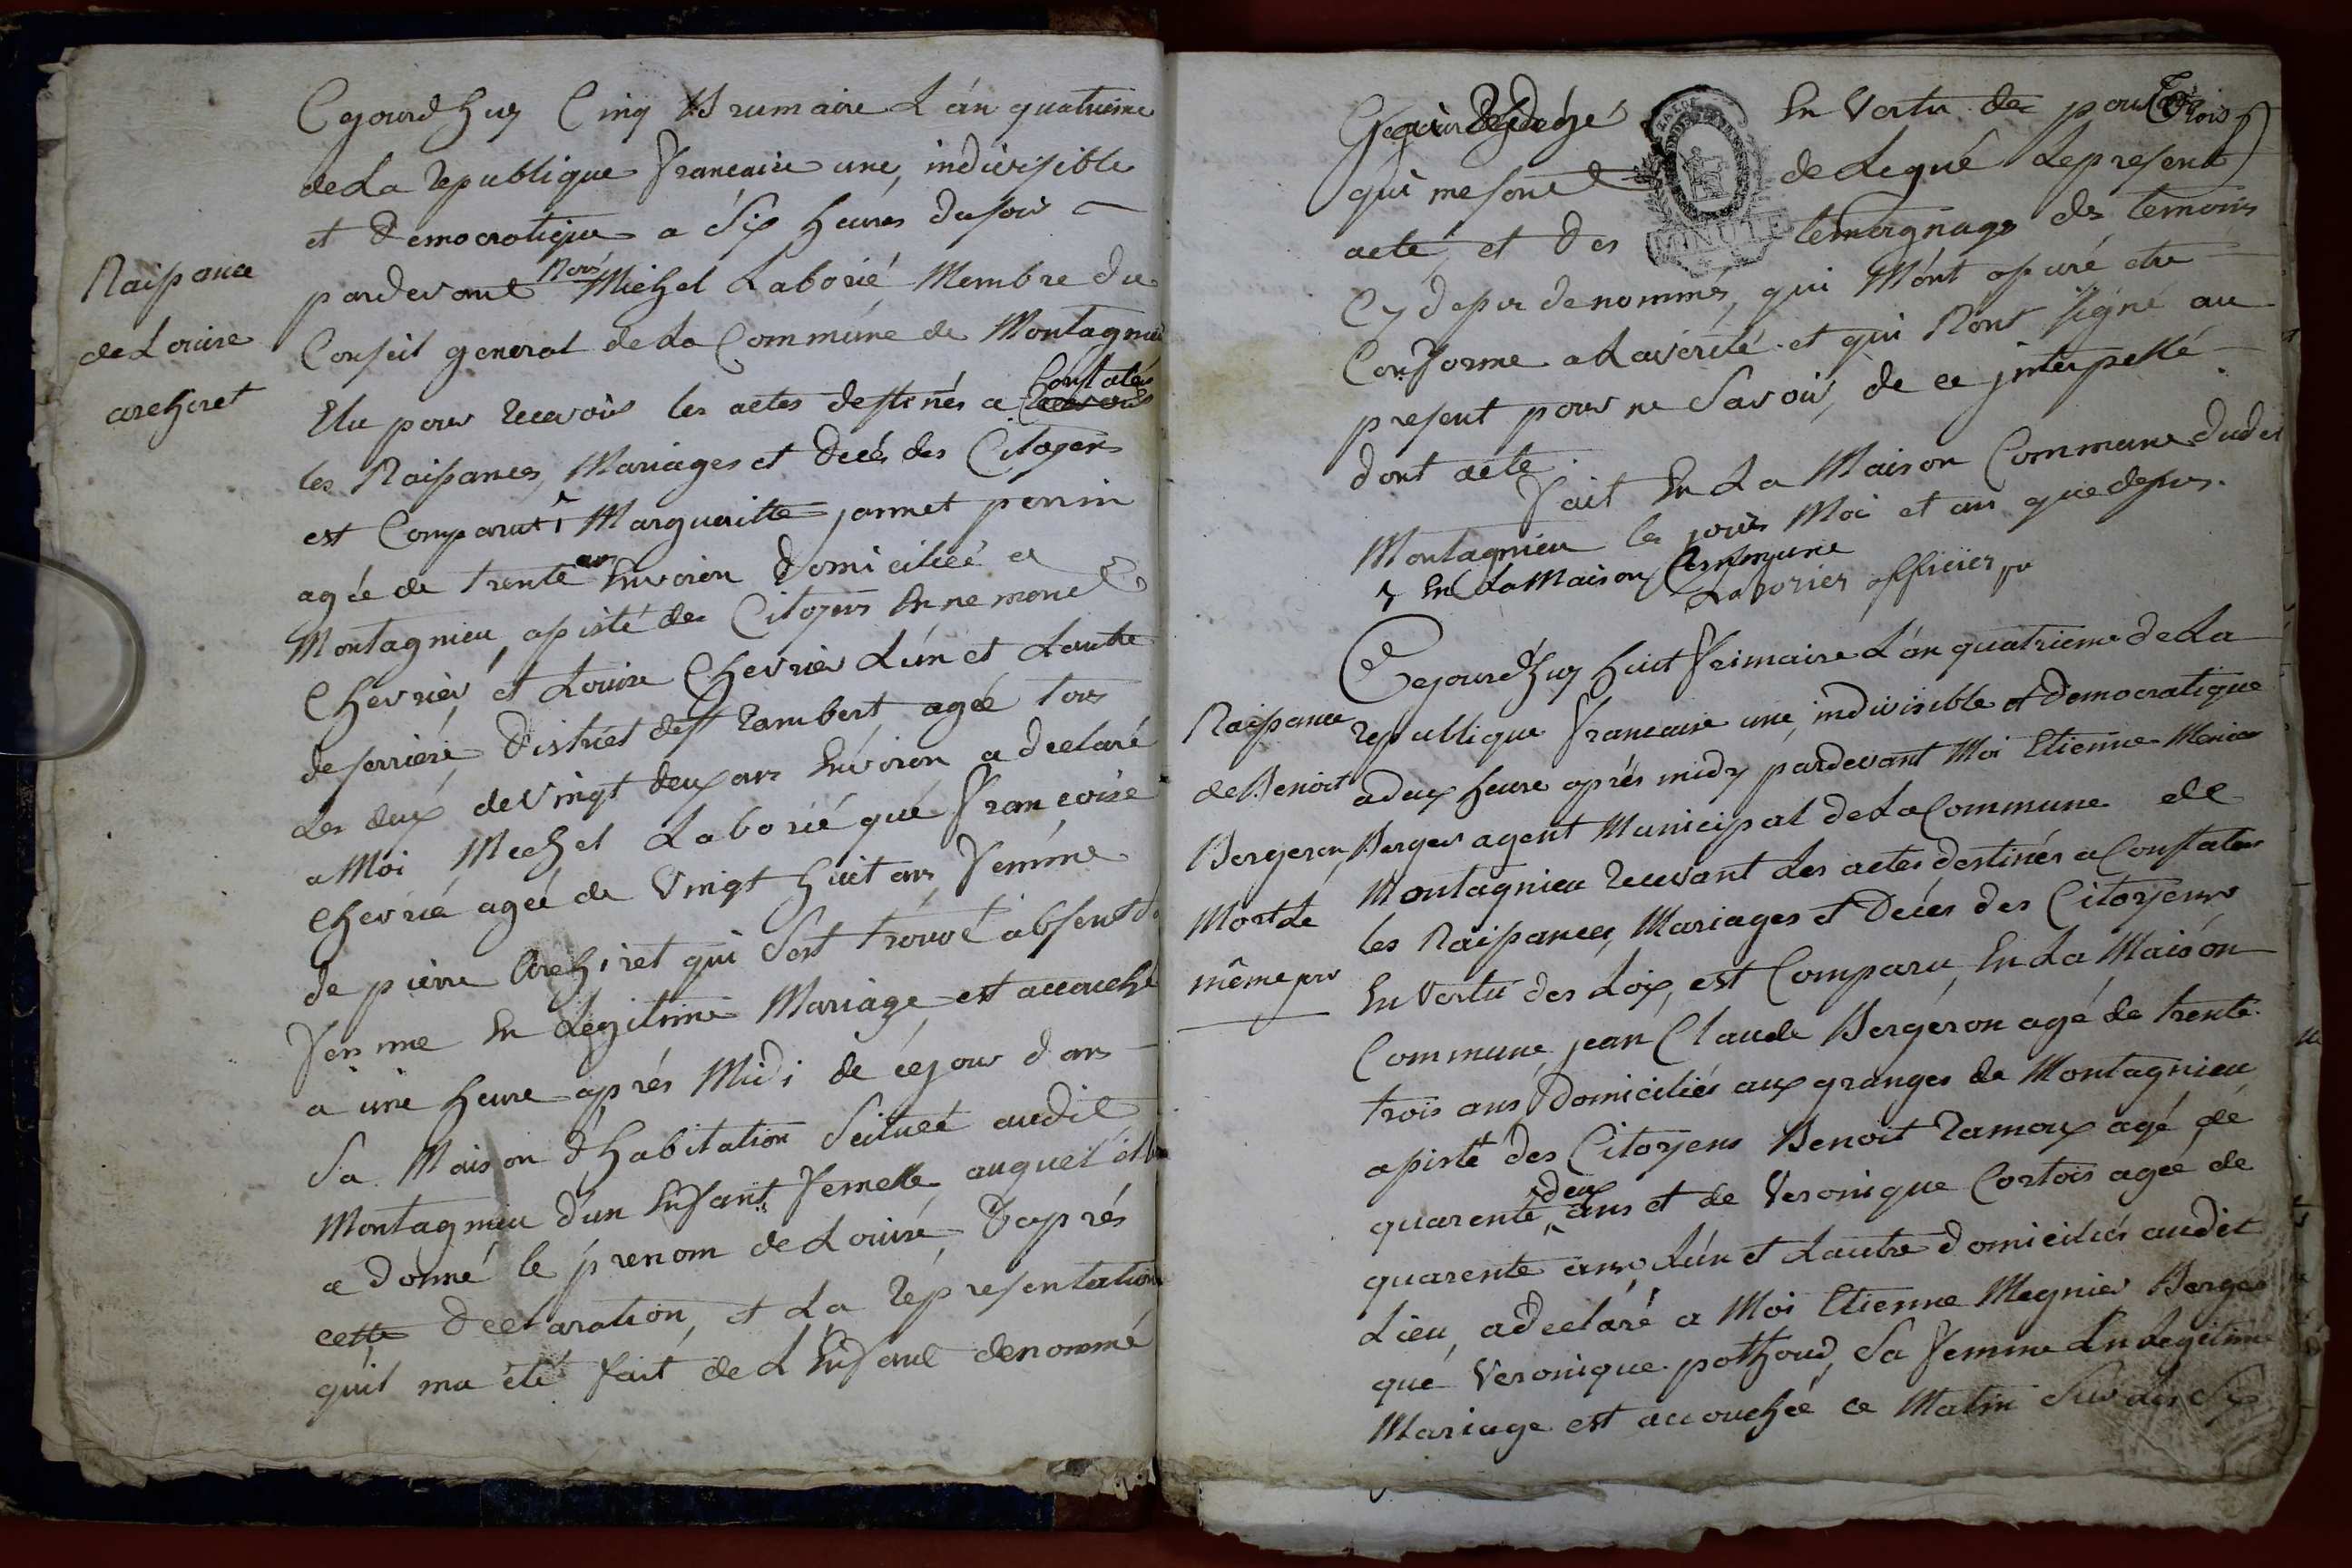 Naissance
de Louise
archeret
Cejourdhuy Cinq Brumaire L'an quatrieme
de La republique francaise une, indivisible
et democratique a Six heures du soir
pardevant Nous Michel Laborié Membre du
Conseil general de La Commune de Montagnieu
Elu pour recevoir les actes destinés a Constater
les Naissances, Mariages et decés des Citoyens
est Comparut Margueritte jannet perrin
agée de trente ans Environ domiciliée a
Montagnieu, assisté des Citoyens Ennemond
Chevrier et Louise Chevrier Lún et Lautre
de serriere, district de st rambert, agée tous
Les deux de Vingt deux ans Environ a declaré
a Moi Mechel Laborié qué francoise
Chevrié agée de Vingt huit ans femme
de pierre Archiret qui Sest trouvé absent
femme En Legitime Mariage est accouché
a une heure aprés Midi de cejour dans
Sa Maison d'habitation Scituée audit
Montagnieu d'un Enfant femelle auquel il
a donné le prenom de Louise, D'aprés
cette declaration, et La representation
quil ma été fait de L'Enfant denommé
jai Redigé En Vertu des pouvoirs
qui me sont delegué Le present
acte, et des temoignage des temoins
Cy dessus denommés, qui M'ont assuré etre
Conforme a La verité et qui N'ont signé au
present pour ne Savoir, de ce interpellé
dont acte.
fait En La Maison Commune dudit
Montagnieu les jours Moi et an que dessus.
En La Maison Commune
Laborier officier
Naissance
de Benoit
Bergeron,
Mort Le
même jour
Cejourdhuy huit frimaire L'an quatrieme de La
republique francaise une, indivisible et democratique
a deux heure aprés midy pardevant Moi Etienne Menier
Berger agent Municipal de La Commune de
Montagnieu recevant Les actes destinés a Constater
les Naissances, Mariages et Decés des Citoyens
En Vertu des Loix, est Comparu, En La Maison
Commune, jean Claude Bergeron agé de trente
trois ans Domiciliés aux granges de Montagnieu
assisté des Citoyens Benoit ramoux agé de
quarente deux ans et de Veronique Cortois agée de
quarente ans Lún et Lautre domiciliés audit
Lieu, a declaré a Moi Etienne Megnier Berger
qué Veronique pothoud, Sa femme En Legitime
Mariage est accouchée ce Matin Sur Les Six